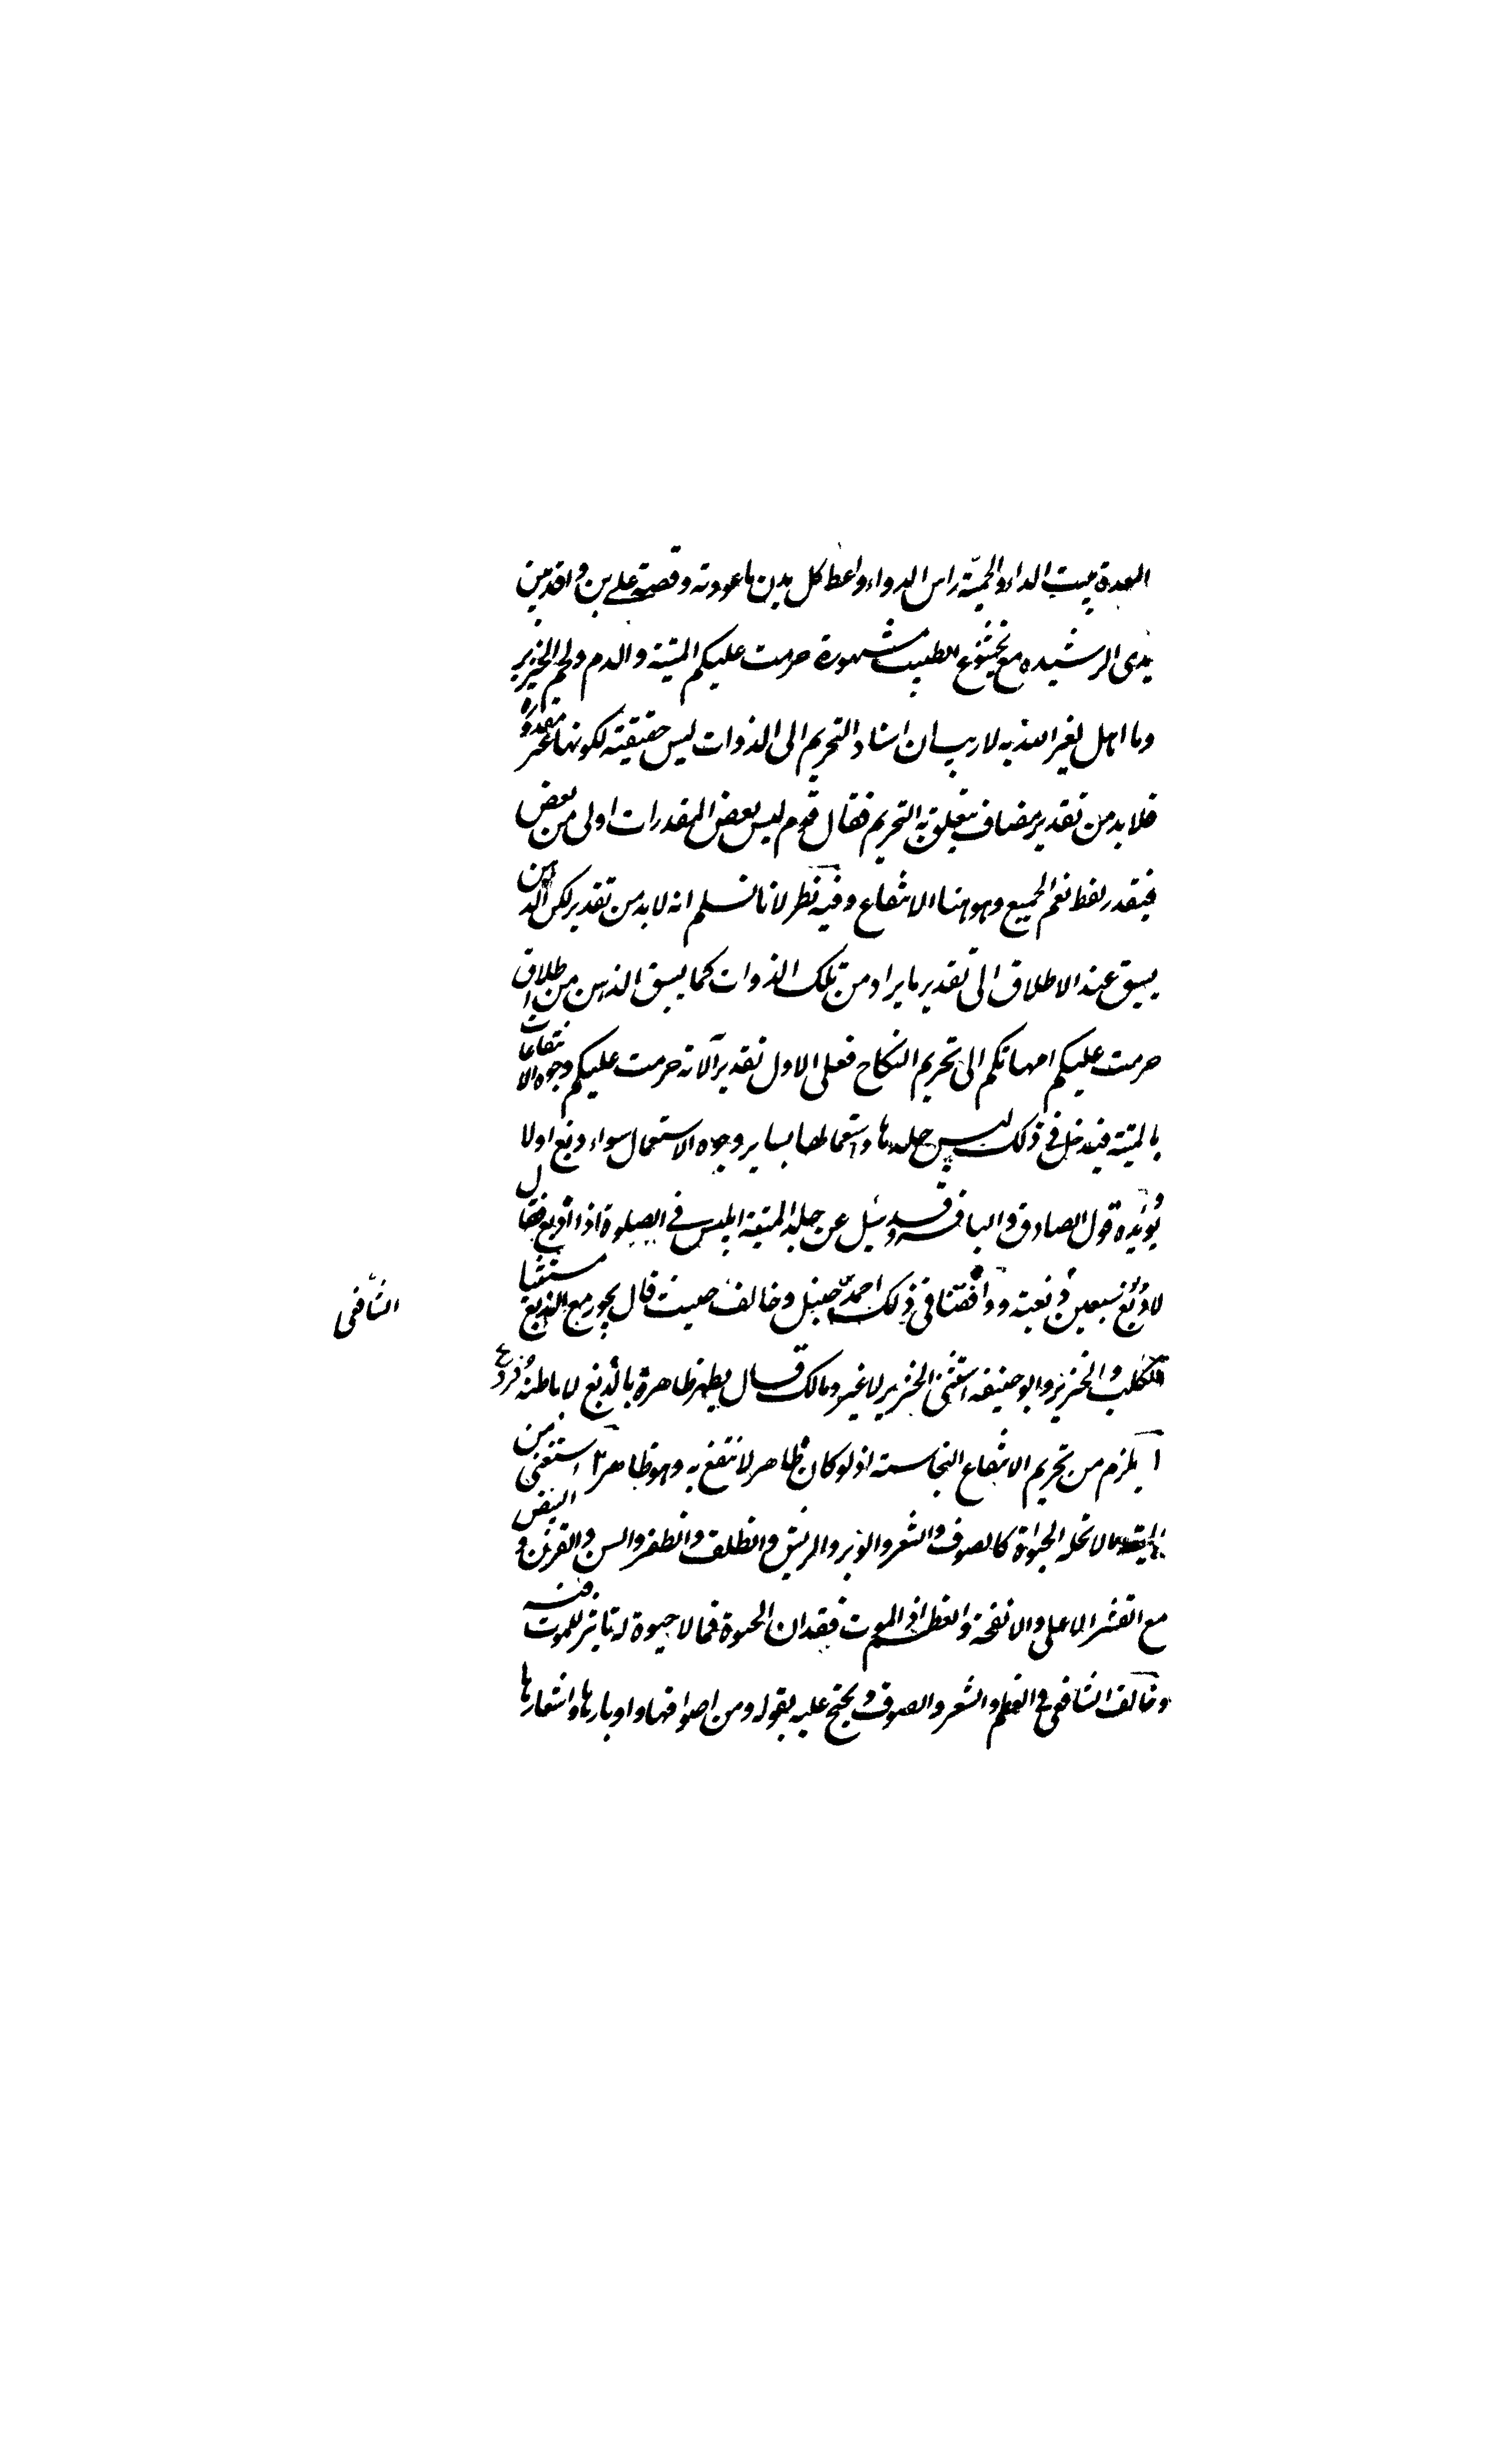 المعدة بيت الداء والحمية راس الدواء واعط كل بدن ما عودته وقصة علي بن واقد بين
يدى الرشيد مع بختيشوع الطبيب مشهورة حرمت عليكم الميتة والدم ولحم الخنزير
وما اهل لغير الله به لا ريب ان اسناد التحريم الى الذوات ليس حقيقته لكونها غير مقدورة
فلا بد من تقدير مضاف يتعلق به التحريم فقال قوم ليس بعض المقدرات اولى من بعض
فيقدر لفظ نعم الجميع وهو هنا الانتفاع وفيه نظر لانا نسلم انه لا بد من تقدير لكن الذهن
يسبق عند الاطلاق الى تقدير ما يراد من تلك الذوات كما يسبق الذهن من اطلاق
حرمت عليكم امهاتكم الى تحريم النكاح فعلى الاول تقدير الآية حرمت عليكم وجوه الانتفاعات
بالميتة فيدخل في ذلك لبس جلدها واستعمالها بساير وجوه الاستعمال سواء دبغ اولا
ويؤيده قول الصادق والباقر وقد سئل عن جلد الميتة ايلبس في الصلوة اذا دبغ فقال
لا ولو دبغ سبعين دبغة ووافقنا في ذلك احمد بن حنبل وخالف حيث قال يجوز مع الدبغ مستثنيا
الشافعى
الكلب والخنزير وابو حنيفه استثنى الخنزير لا غير ومالك قال يطهر ظاهره بالدبغ لا باطنه فروع
ا يلزم من تحريم الانتفاع النجاسة اذ لو كان طاهر لانتفع به وهو ظاهر ٢ استثنى من
الميتة ما لا تحله الحيوة كالصوف والشعر والوبر والريش والظلف والظفر والسن والقرن و البيض
مع القشر الاعلى والانفحة والعظم اذ الموت فقدان الحيوة فما لا حيوة له لا تاثير للموت فيه
وخالف الشافعى في العظم والشعر والصوف ويحتج عليه بقوله ومن اصوافها واوبارها واشعارها